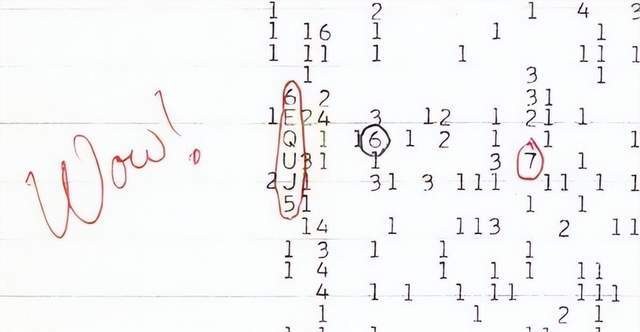 Wow!
1 2 1 4 3
1 16 1 1 1
1 11 1 1 11 1
1 3 1
6 2 31
1 E24 3 12 1 21 1 1
Q 1 16 1 2 1 1 1
U31 1 3 7 1
2 J1 31 3 111 11 1 1
51 1 1
14 1 113 2 11
1 3 1 1 1
1 4 1 1 11
4 1 1 1 11 111
1 1 2 1